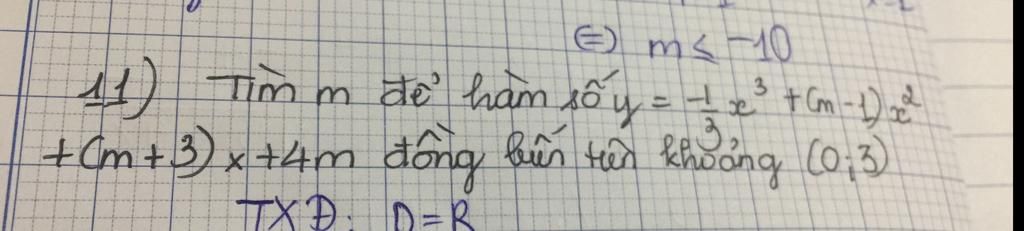 ⇔ m ≤ -10
11) Tìm m để hàm số y = -1/3 x³ + (m-1)x²
+ (m+3)x + 4m đồng biến trên khoảng (0;3)
TXĐ: D=R